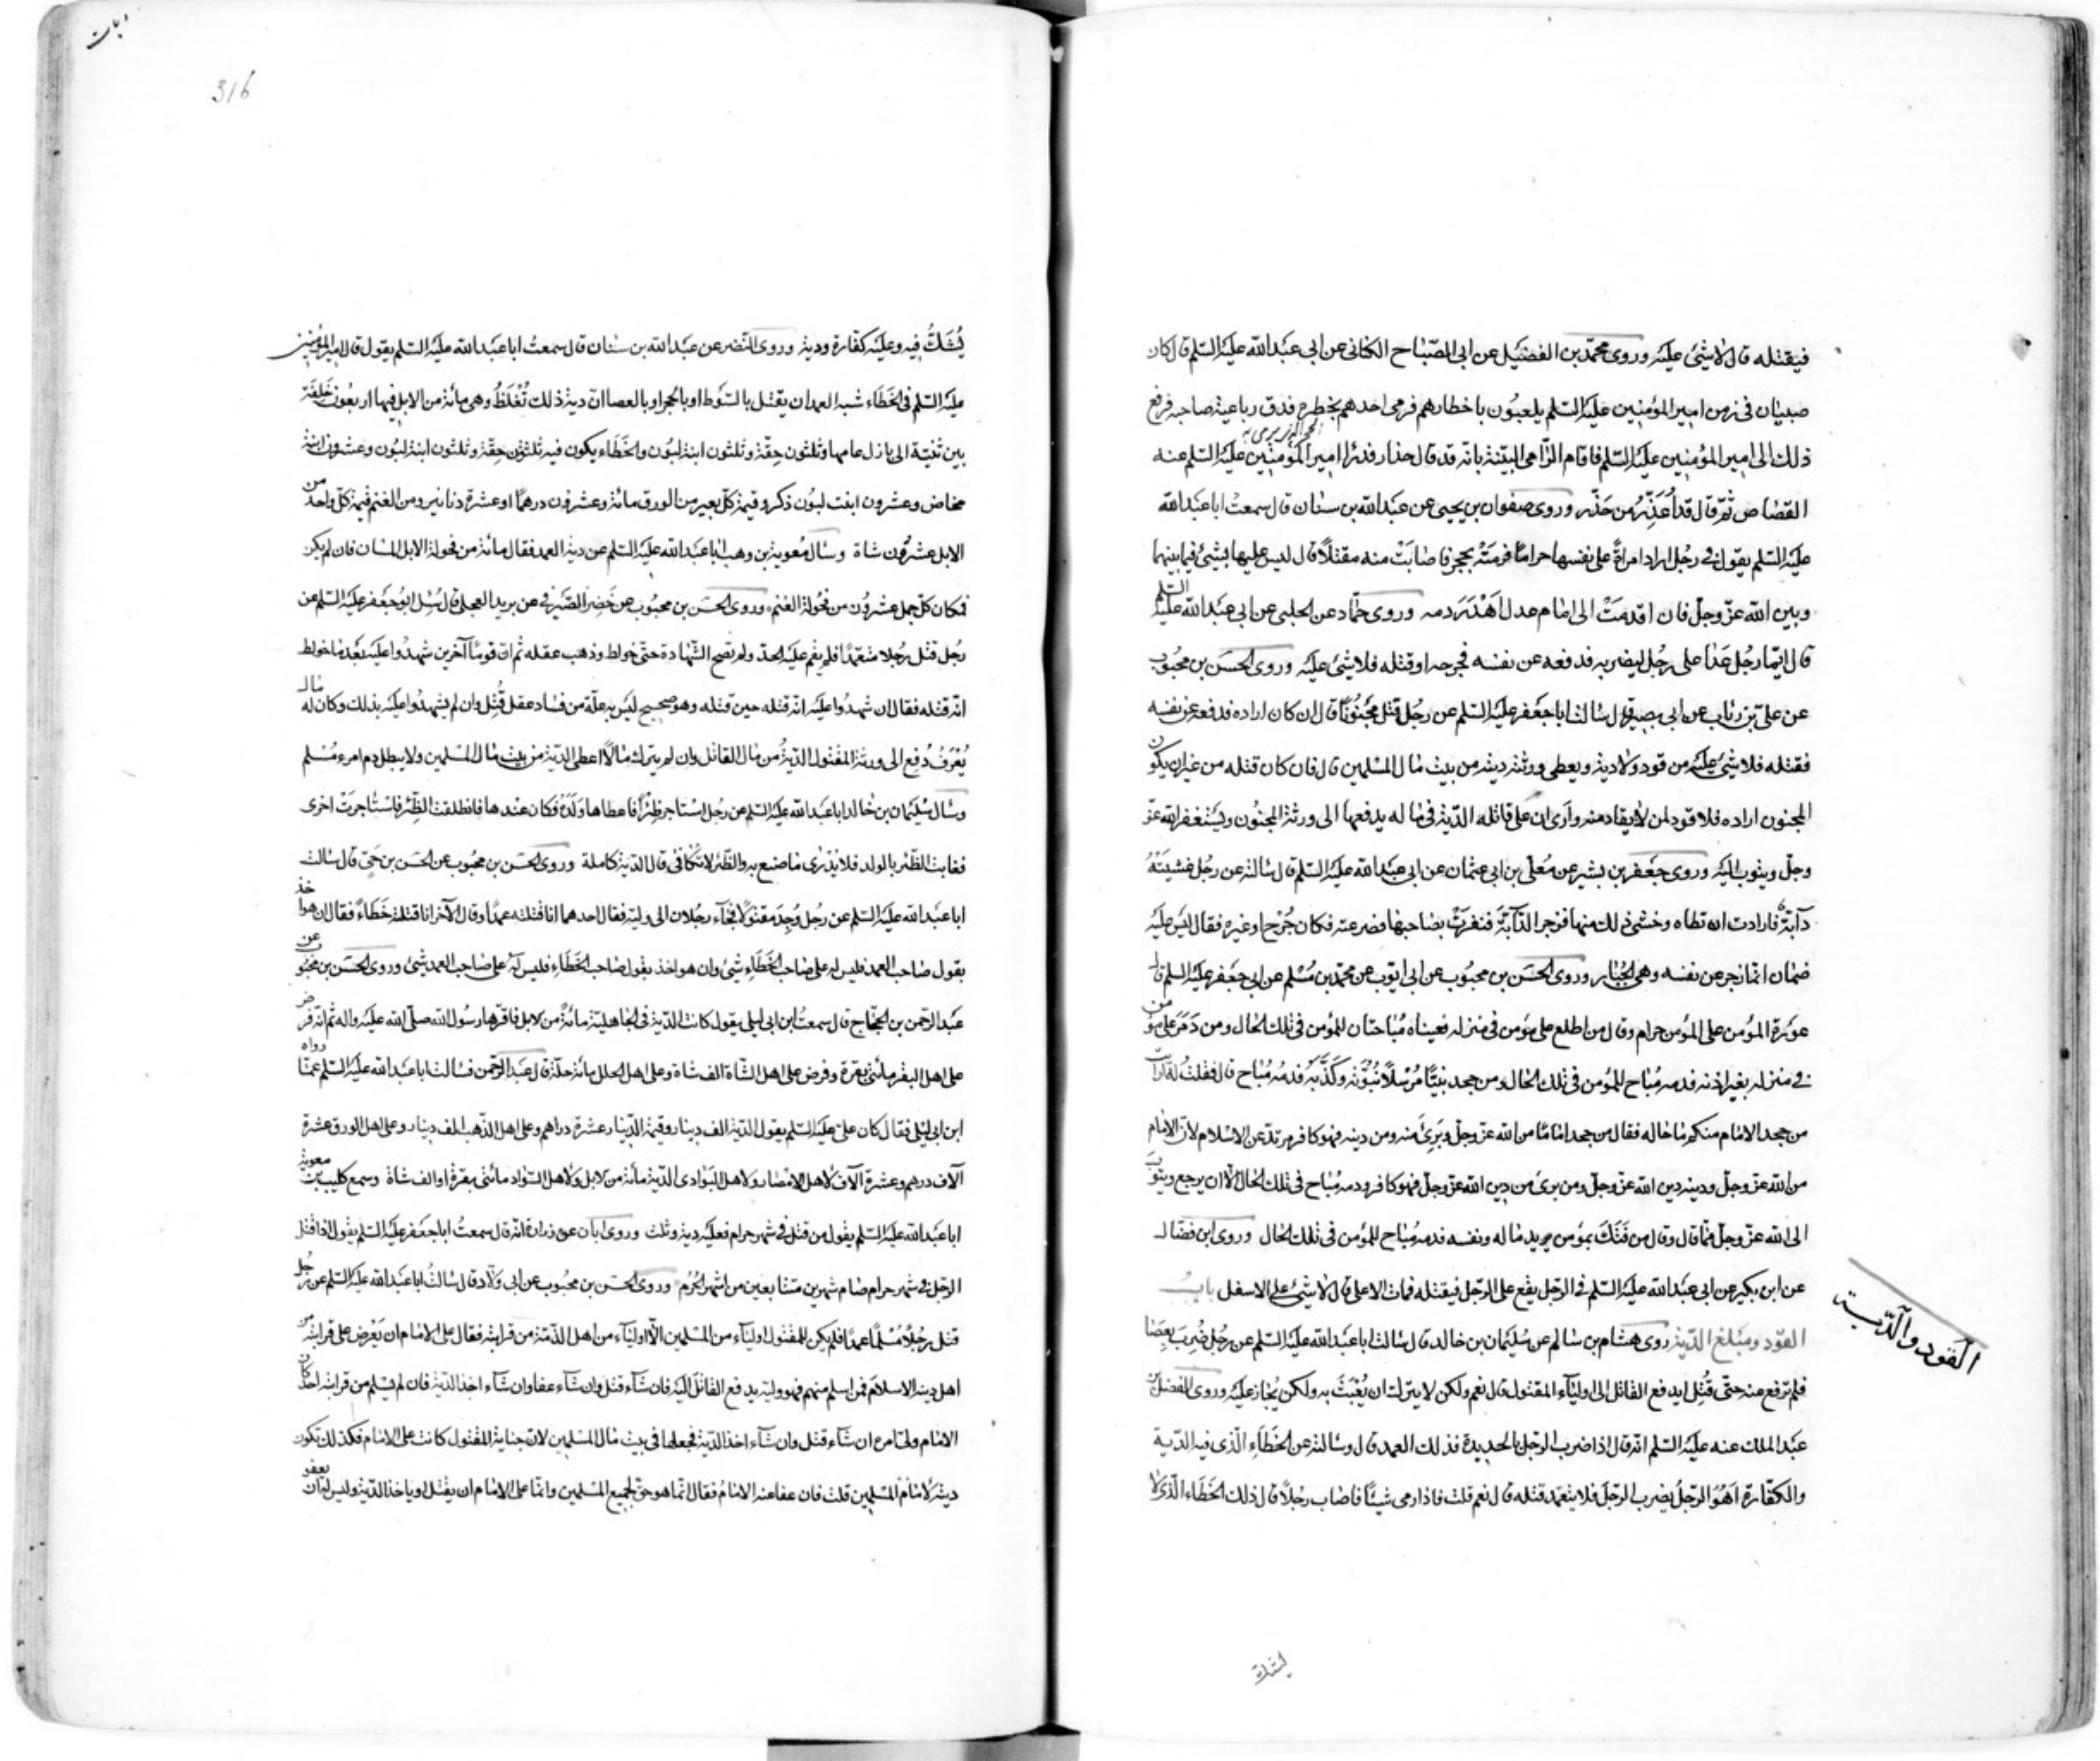 فيقتله قال لا شئ عليه وروى محمّد بن الفضيل عن ابى الصّباح الكنانى عن ابى عبد الله عليه السّلم قال كان
صبيان فى زمن امير المؤمنين عليه السّلم يلعبون باخطارهم فرمى احدهم بخطره فدق رباعية صاحبه فرفع
ذلك الى امير المؤمنين عليه السّلم فاقام الرّامى البيّنة بانّه قد قال حذار فدرأ امير المؤمنين عليه السّلم عنه
القصاص ثمّ قال قد أعذر من حذّر وروى صفوان بن يحيى عن عبد الله بن سنان قال سمعت ابا عبد الله
عليه السّلم يقول فى رجل اراد امراة على نفسها حراما فرمته بحجر فاصابت منه مقتلا قال ليس عليها شئ فيما بينها
وبين الله عزّ وجلّ فان اقدمت الى امام عدل اهدر دمه وروى حمّاد عن الحلبى عن ابى عبد الله عليه السّلم
قال ايّما رجل عدا على رجل ليضربه فدفعه عن نفسه فجرحه او قتله فلا شئ عليه وروى الحسن بن محبوب
عن علىّ بن رئاب عن ابى بصير قال سالت ابا جعفر عليه السّلم عن رجل قتل مجنونا قال ان كان اراده فدفعه عن نفسه
فقتله فلا شئ عليه من قود ولا دية ويعطى ورثته ديته من بيت مال المسلمين قال فان كان قتله من غير ان يكون
المجنون اراده فلا قود لمن لا يقاد منه وارى ان على قاتله الدّية فى ماله يدفعها الى ورثة المجنون ويستغفر الله عزّ
وجلّ ويتوب اليه وروى جعفر بن بشير عن معلّى بن ابى عثمان عن ابى عبد الله عليه السّلم قال سالته عن رجل غشيته
دآبّة فارادت ان تطاه وخشى ذلك منها فزجر الدّآبّة فنفرت بصاحبها فصرعته فكان جرح او غيره فقال ليس عليه
ضمان انما زجر عن نفسه وهى الجبار وروى الحسن بن محبوب عن ابى ايّوب عن محمّد بن مسلم عن ابى جعفر عليه السلم قال
عورة المؤمن على المؤمن حرام وقال من اطلع على مؤمن فى منزله فعيناه مباحتان للمؤمن فى تلك الحال ومن دمر على مؤمن
فى منزله بغير اذنه فدمه مباح للمؤمن فى تلك الحال ومن جحد نبيّا مرسلا نبوّته وكذّبه فدمه مباح قال فقلت له ارايت
من جحد الامام منكم ما حاله فقال من جحد اماما من الله عزّ وجلّ وبرئ منه ومن دينه فهو كافر مرتدّ عن الاسلام لانّ الامام
من الله عزّ وجلّ ودينه دين الله عزّ وجلّ ومن برئ من دين الله عزّ وجلّ فهو كافر ودمه مباح فى تلك الحال الّا ان يرجع ويتوب
الى الله عزّ وجلّ ممّا قال وقال من فتك بمؤمن يريد ماله ونفسه فدمه مباح للمؤمن فى تلك الحال وروى ابن فضّال
عن ابن بكير عن ابى عبد الله عليه السّلم فى الرّجل يقع على الرّجل فيقتله فمات الاعلى قال لا شئ على الاسفل باب
القود ومبلغ الدّية روى هشام بن سالم عن سليمان بن خالد قال سالت ابا عبد الله عليه السّلم عن رجل ضرب بعصا
فلم ترفع عنه حتّى قتل ايدفع القاتل الى اوليآء المقتول قال نعم ولكن لا يترك ان يعبث به ولكن يجاز عليه وروى الفضل بن
عبد الملك عنه عليه السّلم انّه قال اذا ضرب الرّجل بالحديدة فذلك العمد قال وسالته عن الخطاء الّذى فيه الدّية
والكفّارة اهو الرّجل يضرب الرّجل فلا يتعمّد قتله قال نعم قلت فاذا رمى شيئا فاصاب رجلا قال ذلك الخطاء الّذى لا
القود والدّية
يشك
316
يشكّ فيه وعليه كفّارة ودية وروى النّضر عن عبد الله بن سنان قال سمعت ابا عبد الله عليه السّلم يقول قال امير المؤمنين
عليه السّلم فى الخطاء شبه العمد ان يقتل بالسّوط او بالحجر او بالعصا انّ دية ذلك تغلظ وهى مائة من الابل فيها اربعون خلفة
بين ثنيّة الى بازل عامها وثلثون حقّة وثلثون ابنة لبون والخطاء يكون فيه ثلثون حقّة وثلثون ابنة لبون وعشرون ابنة
مخاض وعشرون ابنت لبون ذكر وقيمة كلّ بعير من الورق مائة وعشرون درهما او عشرة دنانير ومن الغنم قيمة كلّ واحد من
الابل عشرون شاة وسال معوية بن وهب ابا عبد الله عليه السّلم عن دية العمد فقال مائة من فحولة الابل المسان فان لم يكن
فمكان كلّ جمل عشرون من فحولة الغنم وروى الحسن بن محبوب عن خضر الصّيرفى عن بريد العجلى قال سئل ابو جعفر عليه السّلم عن
رجل قتل رجلا متعمّدا فلم يقم عليه الحدّ ولم تصح الشّهادة حتّى خولط وذهب عقله ثم انّ قوما آخرين شهدوا عليه بعد ما خولط
انّه قتله فقال ان شهدوا عليه انّه قتله حين قتله وهو صحيح ليس به علّة من فساد عقل قتل وان لم يشهدوا عليه بذلك وكان له مال
يعرف دفع الى ورثة المقتول الدّية من مال القاتل وان لم يترك مالا اعطى الدّية من بيت مال المسلمين ولا يبطل دم امرء مسلم
وسال سليمان بن خالد ابا عبد الله عليه السّلم عن رجل استاجر ظئرا فاعطاها ولده فكان عندها فانطلقت الظّئر فاستاجرت اخرى
فغابت الظّئر بالولد فلا يدرى ما صنع به والظّئر لا تكافى قال الدّية كاملة وروى الحسن بن محبوب عن الحسن بن حىّ قال سالت
ابا عبد الله عليه السّلم عن رجل وجد مقتولا فجآء رجلان الى وليّه فقال احدهما انا قتلته عمدا وقال الآخر انا قتلته خطاء فقال ان هو اخذ
بقول صاحب العمد فليس له على صاحب الخطاء شئ وان هو اخذ بقول صاحب الخطاء فليس له على صاحب العمد شئ وروى الحسن بن محبوب عن
عبد الرّحمن بن الحجّاج قال سمعت ابن ابى ليلى يقول كانت الدّية فى الجاهليّة مائة من الابل فاقرّها رسول الله صلّى الله عليه واله ثم انّه فرض
على اهل البقر مائتى بقرة وفرض على اهل الشّاة الف شاة وعلى اهل الحلل مائة حلّة قال عبد الرّحمن فسالت ابا عبد الله عليه السّلم عمّا رواه
ابن ابى ليلى فقال كان علىّ عليه السّلم يقول الدّية الف دينار وقيمة الدّينار عشرة دراهم وعلى اهل الذّهب الف دينار وعلى اهل الورق عشرة
آلاف درهم وعشرة آلاف لاهل الامصار ولاهل البوادى الدّية مائة من الابل ولاهل السّواد مائتى بقرة او الف شاة وسمع كليب بن معوية
ابا عبد الله عليه السّلم يقول من قتل فى شهر حرام فعليه دية وثلث وروى ابان عن زرارة انّه قال سمعت ابا جعفر عليه السّلم يقول اذا قتل
الرّجل فى شهر حرام صام شهرين متتابعين من اشهر الحرم وروى الحسن بن محبوب عن ابى ولّاد قال سالت ابا عبد الله عليه السّلم عن رجل
قتل رجلا مسلما عمدا فلم يكن للمقتول اوليآء من المسلمين الّا اوليآء من اهل الذّمّة من قرابته فقال على الامام ان يعرض على قرابته من
اهل دينه الاسلام فمن اسلم منهم فهو وليّه يدفع القاتل اليه فان شآء قتل وان شآء عفا وان شآء اخذ الدّية فان لم يسلم من قرابته احد كان
الامام ولىّ امره ان شآء قتل وان شآء اخذ الدّية فجعلها فى بيت مال المسلمين لانّ جناية المقتول كانت على الامام فكذلك تكون
ديته لامام المسلمين قلت فان عفا عنه الامام فقال انّما هو حقّ لجميع المسلمين وانّما على الامام ان يقتل او ياخذ الدّية وليس له ان يعفو